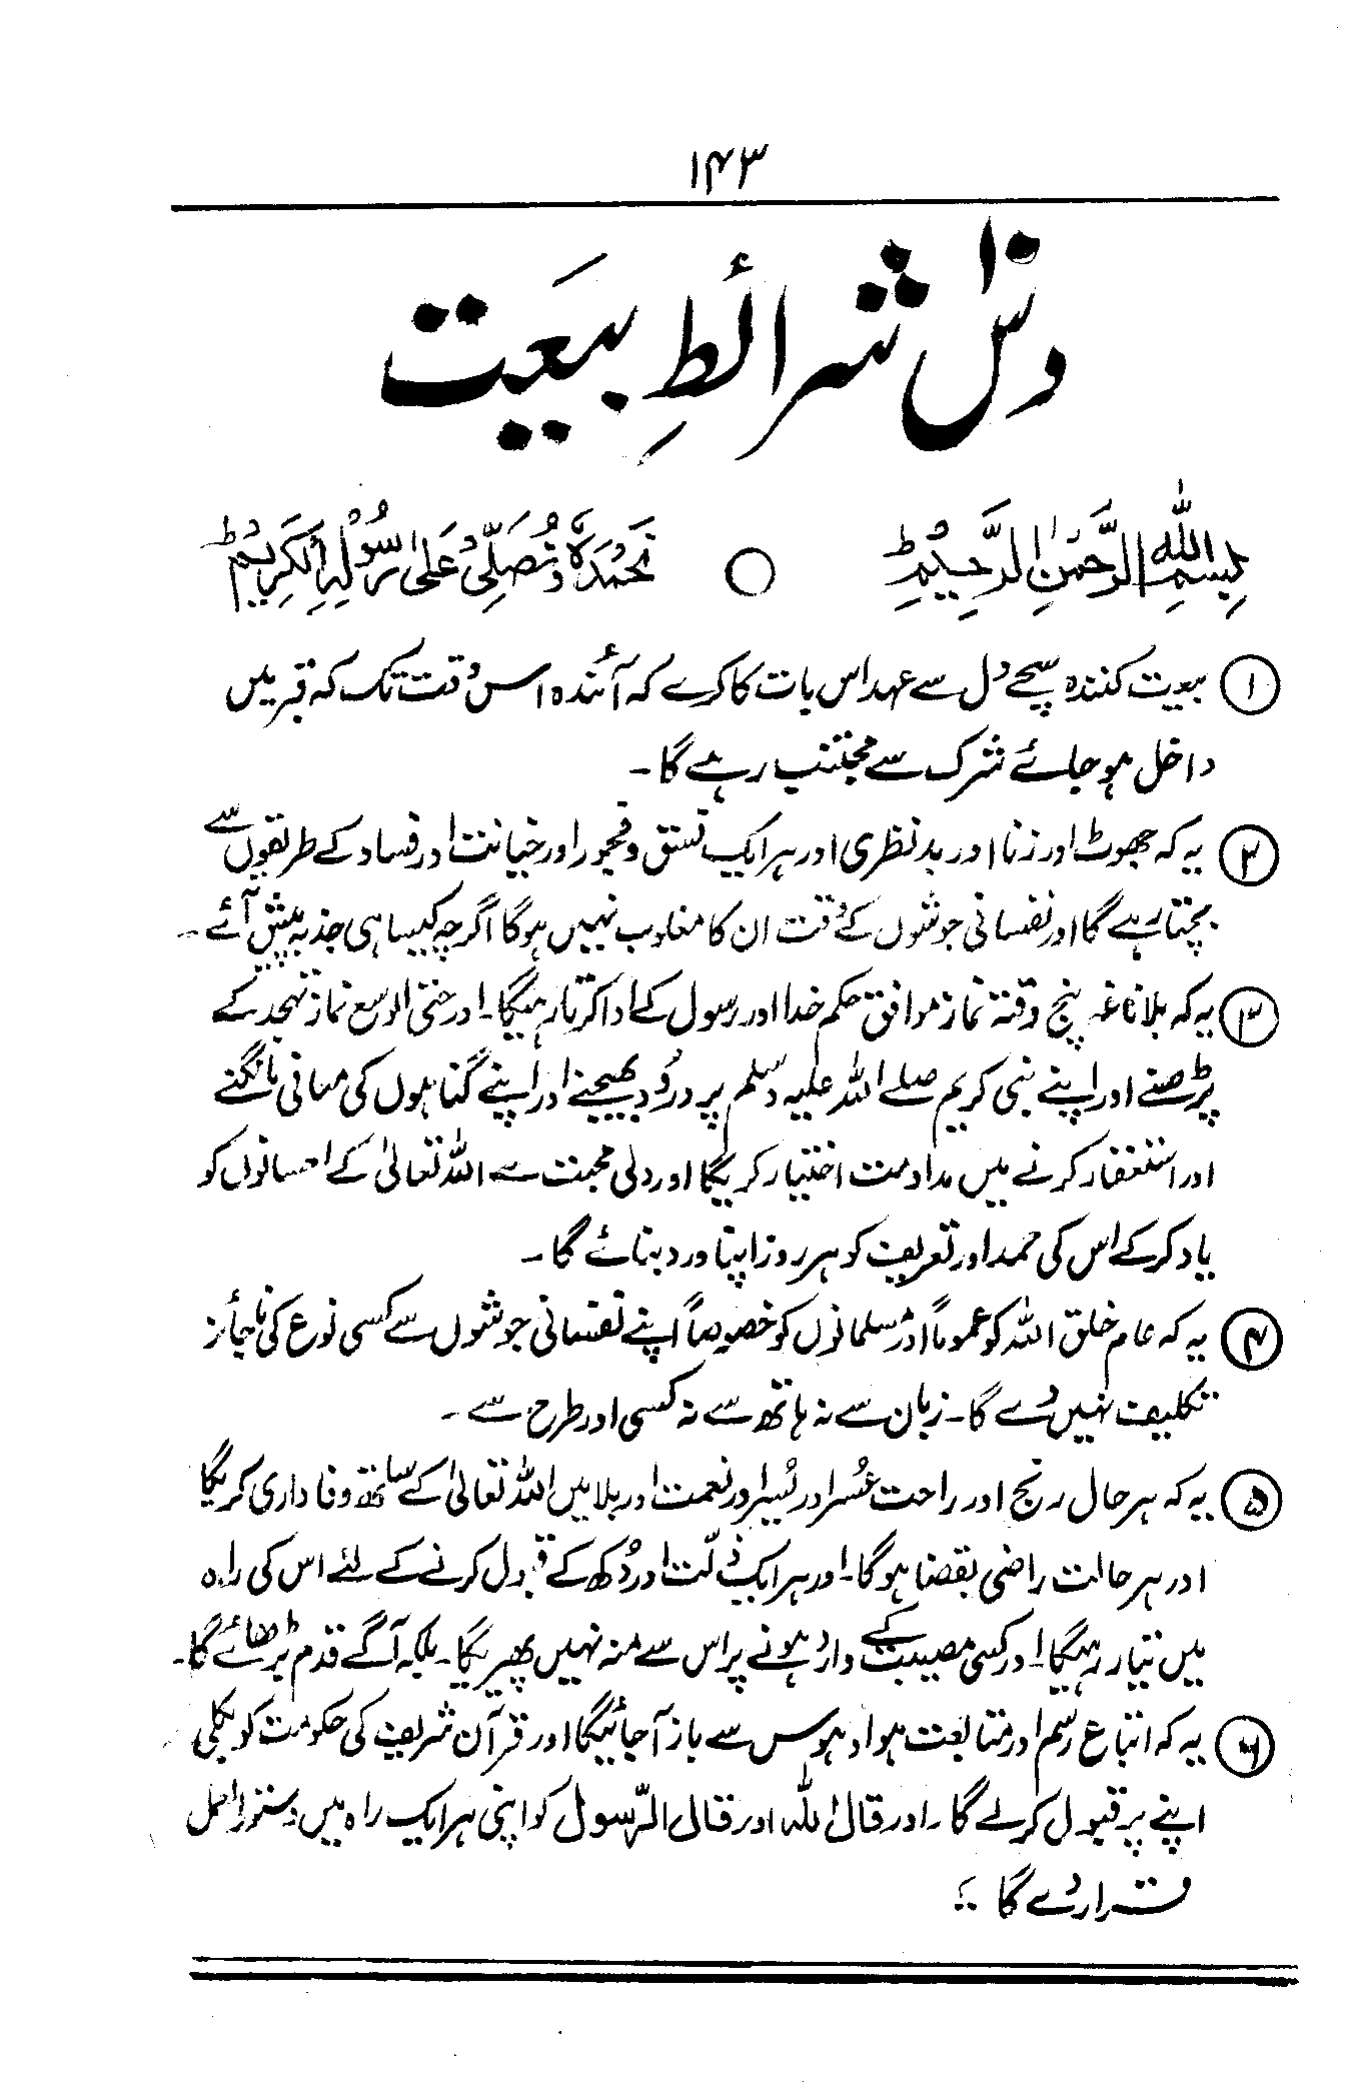 ۱۴۳
دس شرائطِ بیعَت
بِسْمِ اللّٰهِ الرَّحْمٰنِ الرَّحِیْمِؕ ○ نَحْمَدُهٗ وَنُصَلِّیْ عَلیٰ رَسُوْلِهِ الْکَرِیْمِؕ
۱ بیعت کنندہ سچے دل سے عہد اس بات کا کرے کہ آئندہ اس وقت تک کہ قبر میں
داخل ہو جائے شرک سے مجتنب رہے گا۔
۲ یہ کہ جھوٹ اور زنا اور بدنظری اور ہر ایک فسق و فجور اور خیانت اور فساد کے طریقوں سے
بچتا رہے گا اور نفسانی جوشوں کے وقت ان کا مغلوب نہیں ہوگا اگرچہ کیسا ہی جذبہ پیش آئے۔
۳ یہ کہ بلا ناغہ پنج وقتہ نماز موافق حکم خدا اور رسول کے ادا کرتا رہیگا۔ اور حتی الوسع نماز تہجد کے
پڑھنے اور اپنے نبی کریم صلے اللہ علیہ وسلم پر درُود بھیجنے اور اپنے گناہوں کی معافی مانگنے
اور استغفار کرنے میں مداومت اختیار کریگا اور دلی محبت سے اللہ تعالیٰ کے احسانوں کو
یاد کر کے اس کی حمد اور تعریف کو ہر روز اپنا ورد بنائے گا۔
۴ یہ کہ عام خلق اللہ کو عموماً اور مسلمانوں کو خصوصاً اپنے نفسانی جوشوں سے کسی نوع کی ناجائز
تکلیف نہیں دے گا۔ زبان سے نہ ہاتھ سے نہ کسی اور طرح سے۔
۵ یہ کہ ہر حال رنج اور راحت عُسر اور یُسر اور نعمت اور بلا میں اللہ تعالیٰ کے ساتھ وفاداری کریگا
اور ہر حالت راضی بقضا ہوگا۔ اور ہر ایک ذلّت اور دُکھ کے قبول کرنے کے لئے اس کی راہ
میں تیار رہیگا۔ اور کسی مصیبت کے وارد ہونے پر اس سے منہ نہیں پھیریگا۔ بلکہ آگے قدم بڑھائے گا۔
۶ یہ کہ اتباع رسم اور متابعت ہوا و ہوس سے باز آجائیگا اور قرآن شریف کی حکومت کو بکلی
اپنے پر قبول کرلے گا۔ اور قال اللہ اور قال الرّسول کو اپنی ہر ایک راہ میں دستورالعمل
قرار دے گا